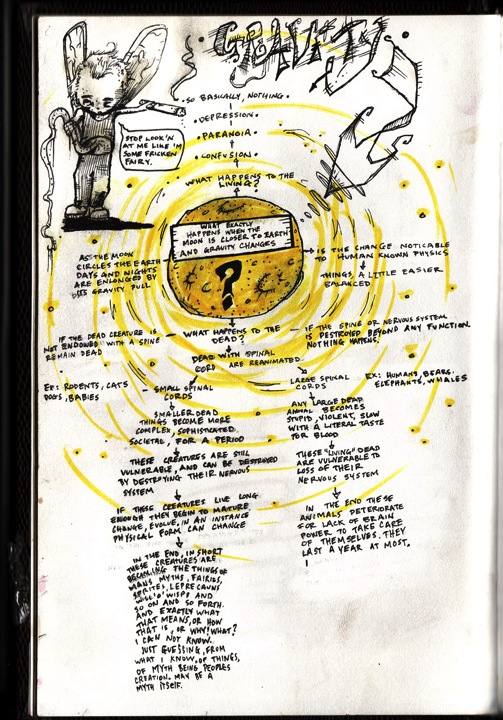 GRAVITY
STOP LOOK'N
AT ME LIKE I'M
SOME FRICKEN
FAIRY.
·SO BASICALLY, NOTHING·
·DEPRESSION·
·PARANOIA·
·CONFUSION·
WHAT HAPPENS TO THE
LIVING?
WHAT EXACTLY
HAPPENS WHEN THE
MOON IS CLOSER TO EARTH
AND GRAVITY CHANGES
?
AS THE MOON
CIRCLES THE EARTH
DAYS AND NIGHTS
ARE ENLONGED BY
GRAVITY PULL
IS THE CHANGE NOTICABLE
TO HUMAN KNOWN PHYSICS
THINGS, A LITTLE EASIER
BALANCED
IF THE DEAD CREATURE IS
NOT ENDOWED WITH A SPINE
REMAIN DEAD
WHAT HAPPENS TO THE
DEAD?
IF THE SPINE OR NERVOUS SYSTEM
IS DESTROYED BEYOND ANY FUNCTION.
NOTHING HAPPENS.
DEAD WITH SPINAL
CORD ARE REANIMATED.
EX: RODENTS, CATS
DOGS, BABIES
SMALL SPINAL
CORDS
LARGE SPINAL
CORDS
EX: HUMANS, BEARS.
ELEPHANTS, WHALES
SMALLER DEAD
THINGS BECOME MORE
COMPLEX, SOPHISTICATED.
SOCIETAL, FOR A PERIOD
THESE CREATURES ARE STILL
VULNERABLE, AND CAN BE DESTROYED
BY DESTROYING THEIR NERVOUS
SYSTEM
IF THESE CREATURES LIVE LONG
ENOUGH THEY BEGIN TO MATURE,
CHANGE, EVOLVE, IN AN INSTANCE
PHYSICAL FORM CAN CHANGE
IN THE END, IN SHORT
THESE CREATURES ARE
BECOMING THE THINGS OF
MANS MYTHS, FAIRIES,
SPRITES, LEPRECAUNS
WILL'O'WISPS AND
SO ON AND SO FORTH.
AND EXACTLY WHAT
THAT MEANS, OR HOW
THAT IS, OR WHY? WHAT?
I CAN NOT KNOW.
JUST GUESSING, FROM
WHAT I KNOW, OF THINGS,
OF MYTH BEING PEOPLES
CREATION. MAY BE A
MYTH ITSELF.
ANY LARGE DEAD
ANIMAL BECOMES
STUPID, VIOLENT, SLOW
WITH A LITERAL TASTE
FOR BLOOD
THESE "LIVING" DEAD
ARE VULNERABLE TO
LOSS OF THEIR
NERVOUS SYSTEM
IN THE END THESE
ANIMALS DETERIORATE
FOR LACK OF BRAIN
POWER TO TAKE CARE
OF THEMSELVES. THEY
LAST A YEAR AT MOST.